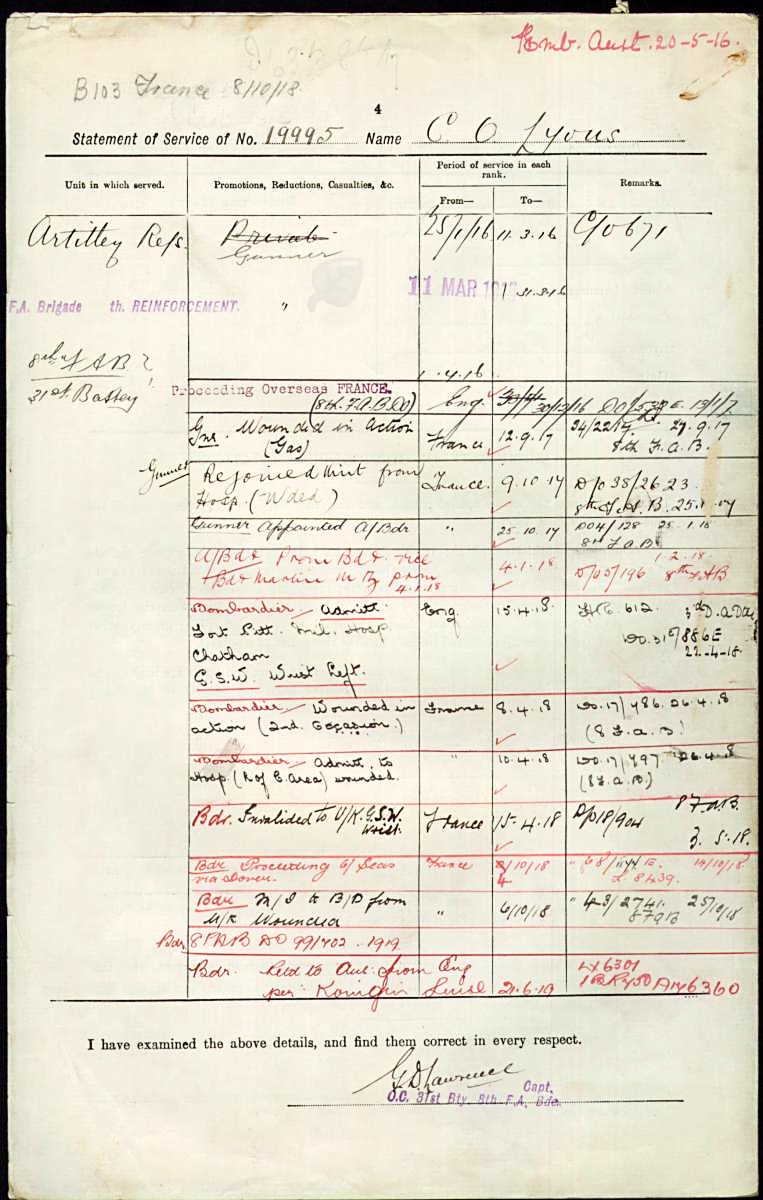 Emb. Aust. 20-5-16.
B103 France 8/10/18.
4
Statement of Service of No. 19995 Name C O Lyons
Unit in which served. Promotions, Reductions, Casualties, &c. Period of service in each rank. Remarks.
From— To—
Artillery Refs. Private 25/1/16 11.3.16 C/0671
Gunner
11 MAR
F.A. Brigade th. REINFORCEMENT. " 31.3.16
1.4.16
8th F A B
31st Battery
Proceeding Overseas FRANCE.
(8th. F.A.B. DO) Eng. 30/12/16
Gnr. Wounded in Action France 12.9.17 34/22/15 27.9.17
(Gas) 8th F.A.B.
Gunner Rejoined Unit from France. 9.10.17 D/O 38/2623
Hosp. (Wded) 8th F.A.B.
Gunner Appointed A/Bdr " 25.10.17 DO4/128 25.1.18
8th F A B
A/Bdr Prom Bdr. vice 4.1.18 1.2.18
Bdr Martin 4.1.18 D/O5/196 8th FAB
Bombardier Admitt. Eng. 15.4.18 612
Fort Pitt. Mil. Hosp DO.31/886E
Chatham 22-4-18
G.S.W. Wrist Left.
Bombardier Wounded in France 8.4.18 DO.17/486. 26.4.18
action (2nd. Occasion.) (8 F.A.B.)
Bombardier Admitt. to " 10.4.18 DO.17/497 26.4.18
Hosp. (R of C. Area) wounded. (8 F.A.B.)
Bdr. Invalided to U/K. G.S.W. Wrist. France 15.4.18 D/O18/904 8 F.A.B.
3.5.18.
Bdr Proceeding O/Seas France 4/10/18 68/ E. 14/10/18
via Dover. L 8439.
Bdr M/I to B/D from " 6/10/18 " 43/2741. 25/10/18
U/K Wounded 8FAB
Bdr 8 FAB DO 99/702 - 1919
Bdr. Retd to Aus: from Eng
per Konigin Luise 21.6.19 A146360
I have examined the above details, and find them correct in every respect.
G D Lawrence
Capt.
O.C. 31st Bty. 8th F.A. Bde.